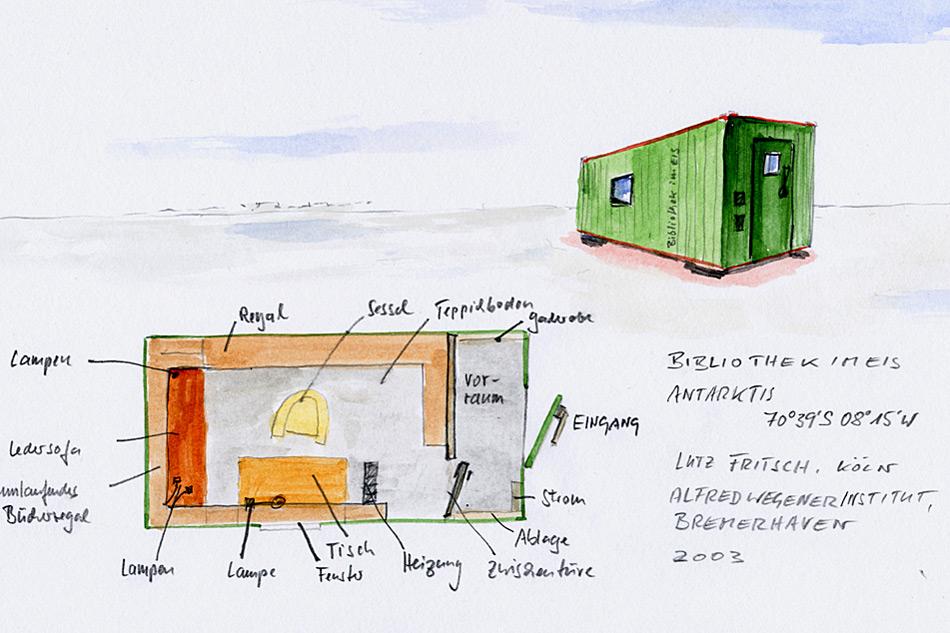 Bibliothek im EIS
Regal
Sessel
Teppichboden
Garderobe
Lampen
Vor-
raum
EINGANG
Ledersofa
umlaufendes
Bücherregal
Strom
Ablage
Tisch
Lampen
Lampe
Fenster
Heizung
Zwischentüre
BIBLIOTHEK IM EIS
ANTARKTIS
70°39'S 08°15'W
LUTZ FRITSCH, KÖLN
ALFRED WEGENER INSTITUT,
BREMERHAVEN
2003